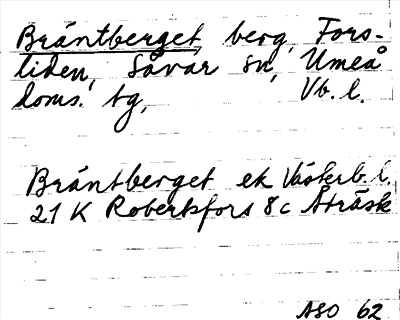 Bräntberget, berg, Fors-
liden, Sävar sn, Umeå
doms. tg, Vb. l.
Bräntberget ek Västerb. l.
21 K Robertsfors 8c Åträsk
ASO 62